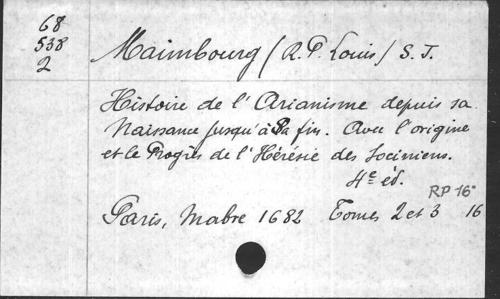 68
538
2
Maimbourg (R.P. Louis) S.J.
Histoire de l'Arianisme depuis sa
Naissance jusqu'à Sa fin. Avec l'origine
et le Progrès de l'Hérésie des Sociniens.
4e éd.
RP 16°
Paris, Mabre 1682 Tomes 2 et 3 16